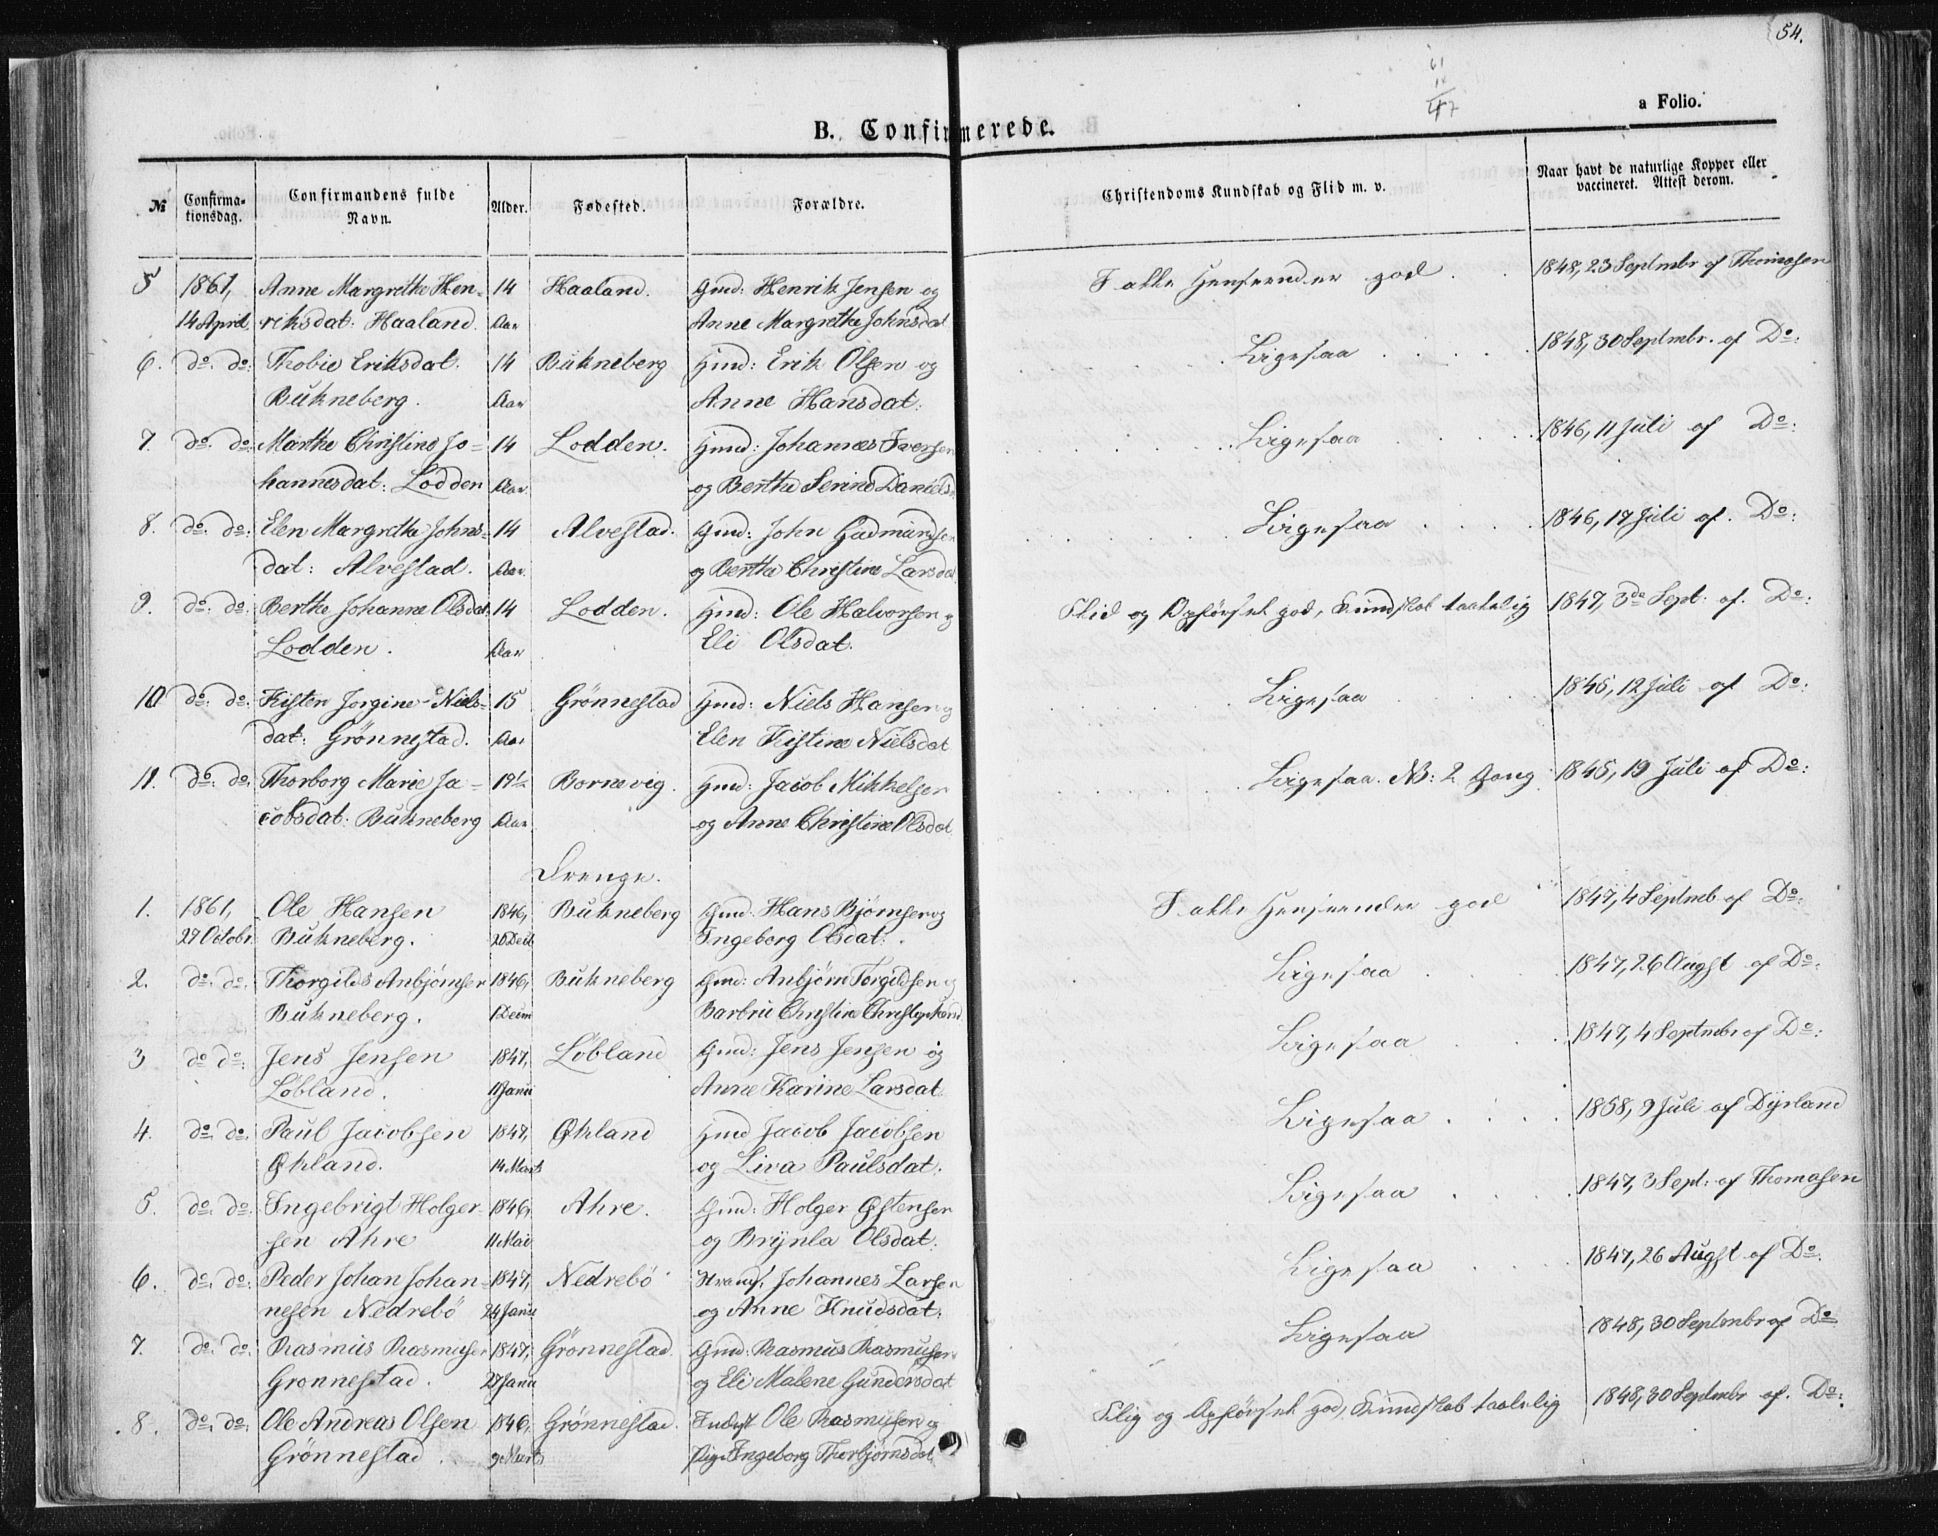 54.
61
14
47
a Folio.
B. Confirmerede.
№ Confirmationsdag. Confirmandens fulde Navn. Alder. Fødested. Forældre. Christendoms Kundskab og Flid m. v. Naar havt de naturlige Kopper eller vaccineret. Attest derom.
5 1861, Anne Margrethe Hen- 14 Haaland. Gmd: Henrik Jensen og I alle Henseender god. 1848, 23 Septmbr af Thomasen
14 April. riksdat: Haaland. Aar Anne Margrethe Johnsdat
6. do. do: Thobie Eriksdat. 14 Bukneberg Gmd: Erik Olsen og Ligesaa 1848, 30 Septmbr. af Do:
Bukneberg. Aar Anne Hansdat:
7. do. do: Marthe Christine Jo- 14 Lodden. Gmd: Johannes Iversen Ligesaa 1846, 11 Juli af Do:
hannesdat: Lodden Aar og Berthe Serine Daniels
8. do: do: Elen Margrethe Johns- 14 Alvestad. Gmd: John Gudmundsen Ligesaa 1846, 17 Juli af. Do:
dat: Alvestad. Aar. og Berthe Christine Larsdat
9. do: do: Berthe Johanne Olsdat. 14 Lodden. Gmd: Ole Halvorsen og Flid og Opførsel god, Kundskab taalelig 1847, 3de Sept: af. Do:
Lodden. Aar Eli Olsdat.
10 do: do: Kisten Jorgine Niels- 15 Grönnestad Gmd: Niels Hansen og Ligesaa 1845, 12 Juli af Do:
dat: Grönnestad. Aar Elen Kistine Nielsdat
11. do: do: Thorborg Marie Ja- 19½ Bornevig. Gmd: Jacob Mikkelsen Ligesaa. NB: 2 Gang 1845, 19 Juli af Do:
cobsdat: Bukneberg Aar og Anne Christine Olsdat
Drenge.
1. 1861, Ole Hansen 1846, Bukneberg Gmd: Hans Bjørnsen og I alle Henseender god 1847, 4 Septmb af Do:
27 Octobr. Bukneberg. Ingeborg Olsdat:.
2. do: do: Thorgilds Anbjørnsen 1846, Bukneberg Gmd: Anbjørn Torgildsen og Ligesaa 1847, 26 Augst af Do:
Bukneberg. Barbru Christine
3 do: do: Jens Jensen 1847, Löbland Gmd: Jens Jensen og Ligesaa 1847, 4 Septmbr af Do:
Löbland. 11 Janu Anne Karine Larsdat.
4. do: do: Paul Jacobsen 1847, Økland Gmd Jacob Jacobsen Ligesaa 1858, 9 Juli af Dyrland
Økland. 14 Marts og Liva Paulsdat.
5. do: do: Ingebrigt Holger- 1846, Ahre. Gmd: Holger Østensen Ligesaa 1847, 3 Sept: af Thomasen
sen Ahre 11 Mai og Brynla Olsdat.
6. do: do: Peder Johan Johan- 1847, Nedrebö Johannes Larsen Ligesaa 1847, 26 Augst af Do.
nesen Nedrebö 24 Janu og Anne Knudsdat:
7. do: do: Rasmus Rasmusen 1847, Grönnestad. Gmd: Rasmus Rasmusen Ligesaa 1848, 30 Septmbr af Do
Gronnestad. 27 Janu og Eli Malene Gundersdat
8. do: do: Ole Andreas Olsen 1846, Grönnestad. Inderst Ole Rasmusen og Flig og Opførsel god, Kundskab taalelig 1848, 30 Septmbr af. Do:
Grönnestad. 9 Marts Pige Ingeborg Thorbjørnsdat